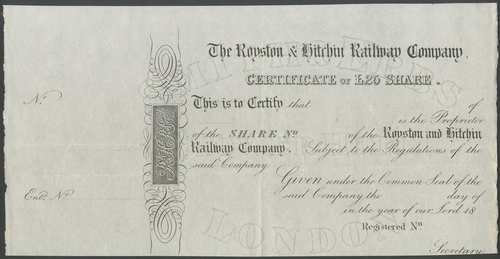 The Royston & Hitchin Railway Company.
CERTIFICATE OF £25 SHARE.
No.
This is to Certify that of
is the Proprietor
of the SHARE No. of the Royston and Hitchin
Railway Company. Subject to the Regulations of the
said Company
Given under the Common Seal of the
Endd. No. said Company the day of
in the year of our Lord 18
Registered No.
Secretary.
LONDON